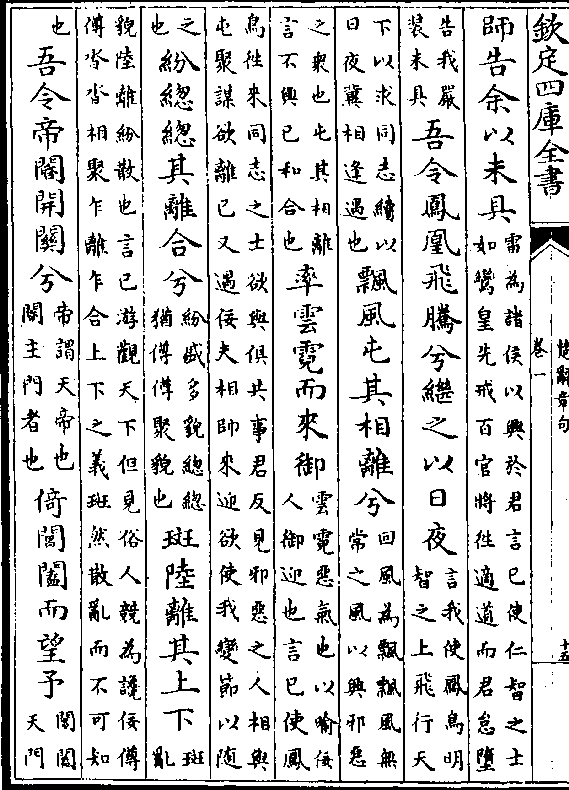 欽定四庫全書
楚辭章句
卷一
十五
師告余以未具雷為諸侯以興於君言已使仁智之士如鸞皇先戒百官將往適道而君怠墮
告我嚴裝未具吾令鳳凰飛騰兮繼之以日夜言我使鳳鳥明智之上飛行天
下以求同志續以日夜冀相逢遇也飄風屯其相離兮回風為飄飄風無常之風以興邪惡
之衆也屯其相離言不與已和合也率雲霓而來御雲霓惡氣也以喻佞人御迎也言已使鳳
鳥往來同志之士欲與俱共事君反見邪惡之人相與屯聚謀欲離已又遇佞夫相帥來迎欲使我變節以隨
之也紛緫緫其離合兮紛盛多貌緫緫猶僔僔聚貌也斑陸離其上下斑亂
貌陸離紛散也言已游觀天下但見俗人競為讒佞僔僔沓沓相聚乍離乍合上下之義斑然散亂而不可知
也吾令帝閽開關兮帝謂天帝也閽主門者也倚閶闔而望予閶闔天門